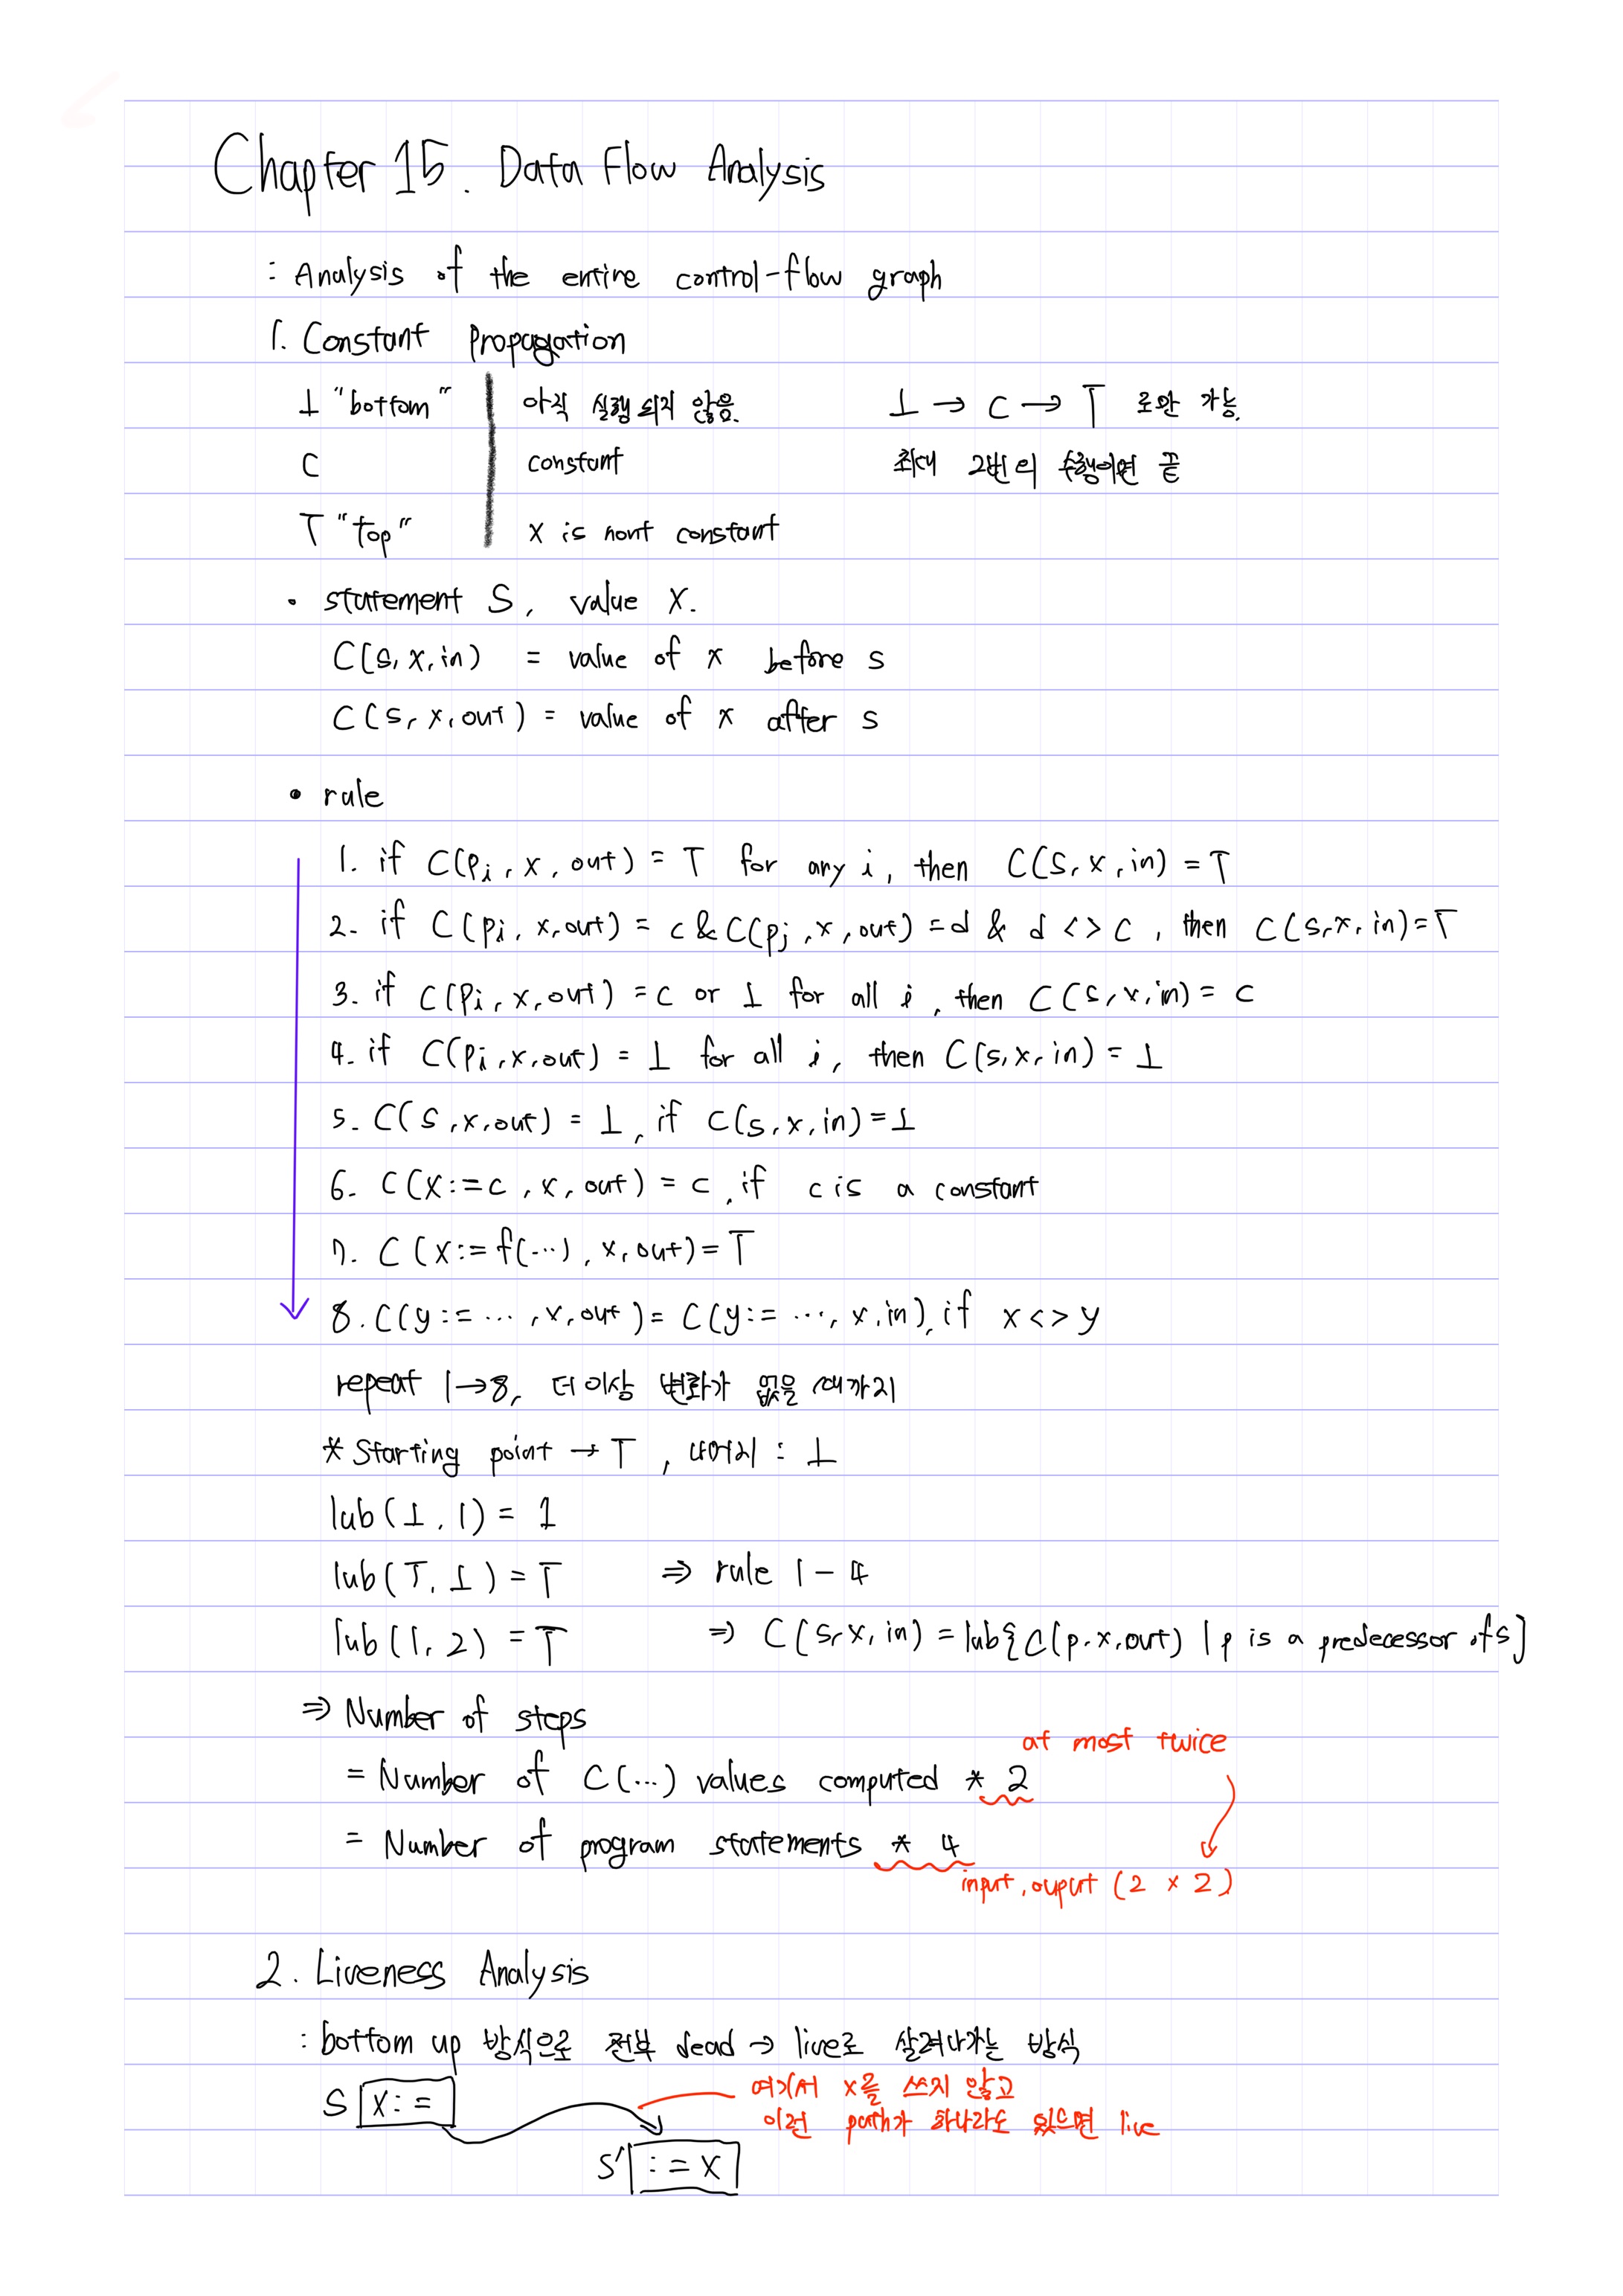 Chapter 15. Data Flow Analysis
: Analysis of the entire control-flow graph
1. Constant Propagation
⊥ "bottom" 아직 실행되지 않음. ⊥ → C → T 로만 가능.
C constant 최대 2번의 수행이면 끝
T "top" X is nont constant
• statement S, value X.
C(s, x, in) = value of x before s
C(s, x, out) = value of x after s
• rule
1. if C(Pi, x, out) = T for any i, then C(s, x, in) = T
2. if C(pi, x, out) = c & C(pj, x, out) = d & d <> c, then C(s, x, in) = T
3. if C(Pi, x, out) = c or ⊥ for all i, then C(s, x, in) = c
4. if C(Pi, x, out) = ⊥ for all i, then C(s, x, in) = ⊥
5. C(s, x, out) = ⊥, if C(s, x, in) = ⊥
6. C(x:=c, x, out) = c, if c is a constant
7. C(x:=f(...), x, out) = T
8. C(y:= ..., x, out) = C(y:= ..., x, in), if x <> y
repeat 1→8, 더이상 변화가 없을 때까지
* Starting point → T, 나머지 : ⊥
lub(⊥, 1) = 1
lub(T, ⊥) = T ⇒ rule 1-4
lub(1, 2) = T ⇒ C(s, x, in) = lub{C(p, x, out) | p is a predecessor of s}
⇒ Number of steps
at most twice
= Number of C(...) values computed * 2
= Number of program statements * 4
input, ouput (2 x 2)
2. Liveness Analysis
: bottom up 방식으로 전부 dead → live로 살려나가는 방식
S x:= 여기서 x를 쓰지 않고
이런 path가 하나라도 있으면 live
S' := x